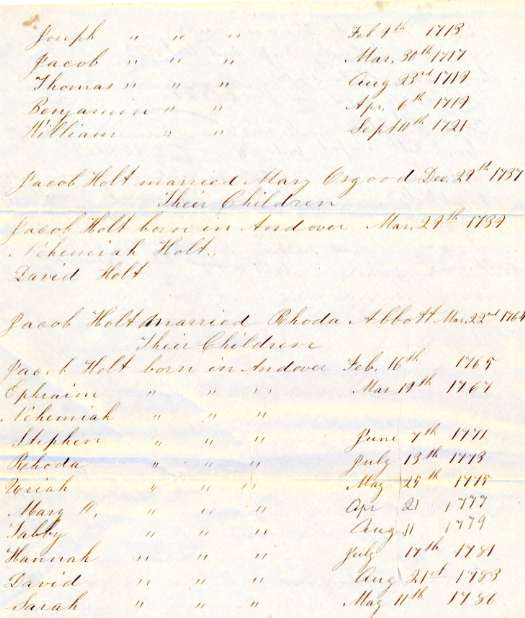 Joseph " " " Feb 9th 1713
Jacob " " " Mar, 30th 1717
Thomas " " " Aug 23rd 1719
Benjamin " " " Apr, 6th 1719
William " " Sept 10th 1721
Jacob Holt married Mary Osgood Dec, 29th 1737
Their Children
Jacob Holt born in Andover Mar, 29th 1739
Nehemiah Holt,
David Holt
Jacob Holt married Rhoda Abbott Mar, 22nd 1764
Their Children
Jacob Holt born in Andover Feb, 16th 1765
Ephraim " " " Mar 19th 1767
Nehemiah " " "
Stephen " " " June 7th 1771
Rhoda " " " July 13th 1773
Uriah " " " May 25th 1775
Mary H, " " " Apr 21 1777
Tabby " " " Aug 11 1779
Hannah " " " July 17th 1781
David " " " Aug 21st 1783
Sarah " " " May 11th 1786